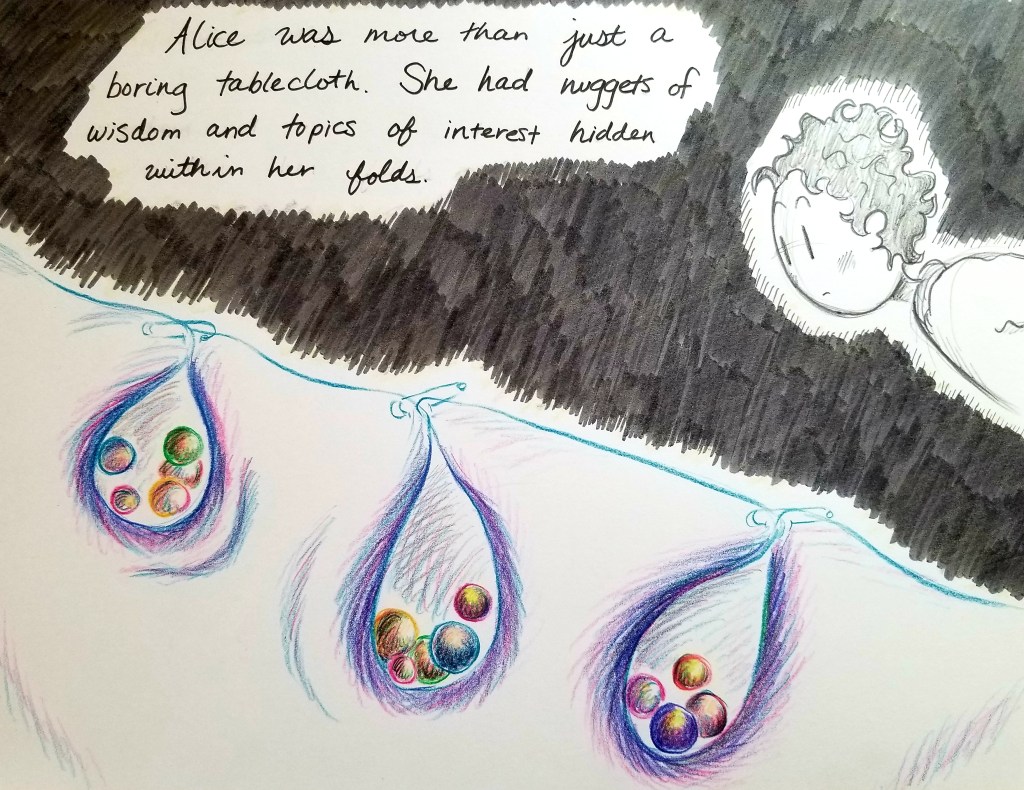 Alice was more than just a
boring tablecloth. She had nuggets of
wisdom and topics of interest hidden
within her folds.